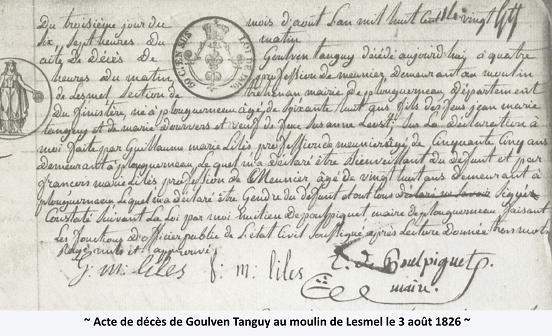 Du troisième jour du mois d'août l'an mil huit cent vingt
six Sept heures du matin
acte de Décès de Goulven Tanguy décédé aujourd'hui à quatre
heures du matin profession de meunier, Demeurant au moulin
de Lesmel section de trehenan mairie de plouguerneau, Département
du finistère, né à plouguerneau âgé de soixante huit ans fils de feus jean marie
tanguy et de marie et veuf de feue Susanne Leost; Sur La déclaration à
moi faite par Guillaume marie Liles profession de meunier âgé de Cinquante Cinq ans
demeurant à plouguerneau Lequel m'a déclaré être Bienveillant du deffunt et par
francois marie Liles profession de Meunier âgé de vingt huit ans Demeurant à
plouguerneau Lequel m'a déclaré être Gendre du deffunt et ont tous déclaré ne savoir signer
Constaté Suivant La Loi par moi de poulpiquet, maire de plouguerneau faisant
Les fonctions D'officier public de L'état Civil Soussigné, après Lecture Donnée
approuvé
G: m: liles f: m: liles de Poulpiquet
maire.
~ Acte de décès de Goulven Tanguy au moulin de Lesmel le 3 août 1826 ~